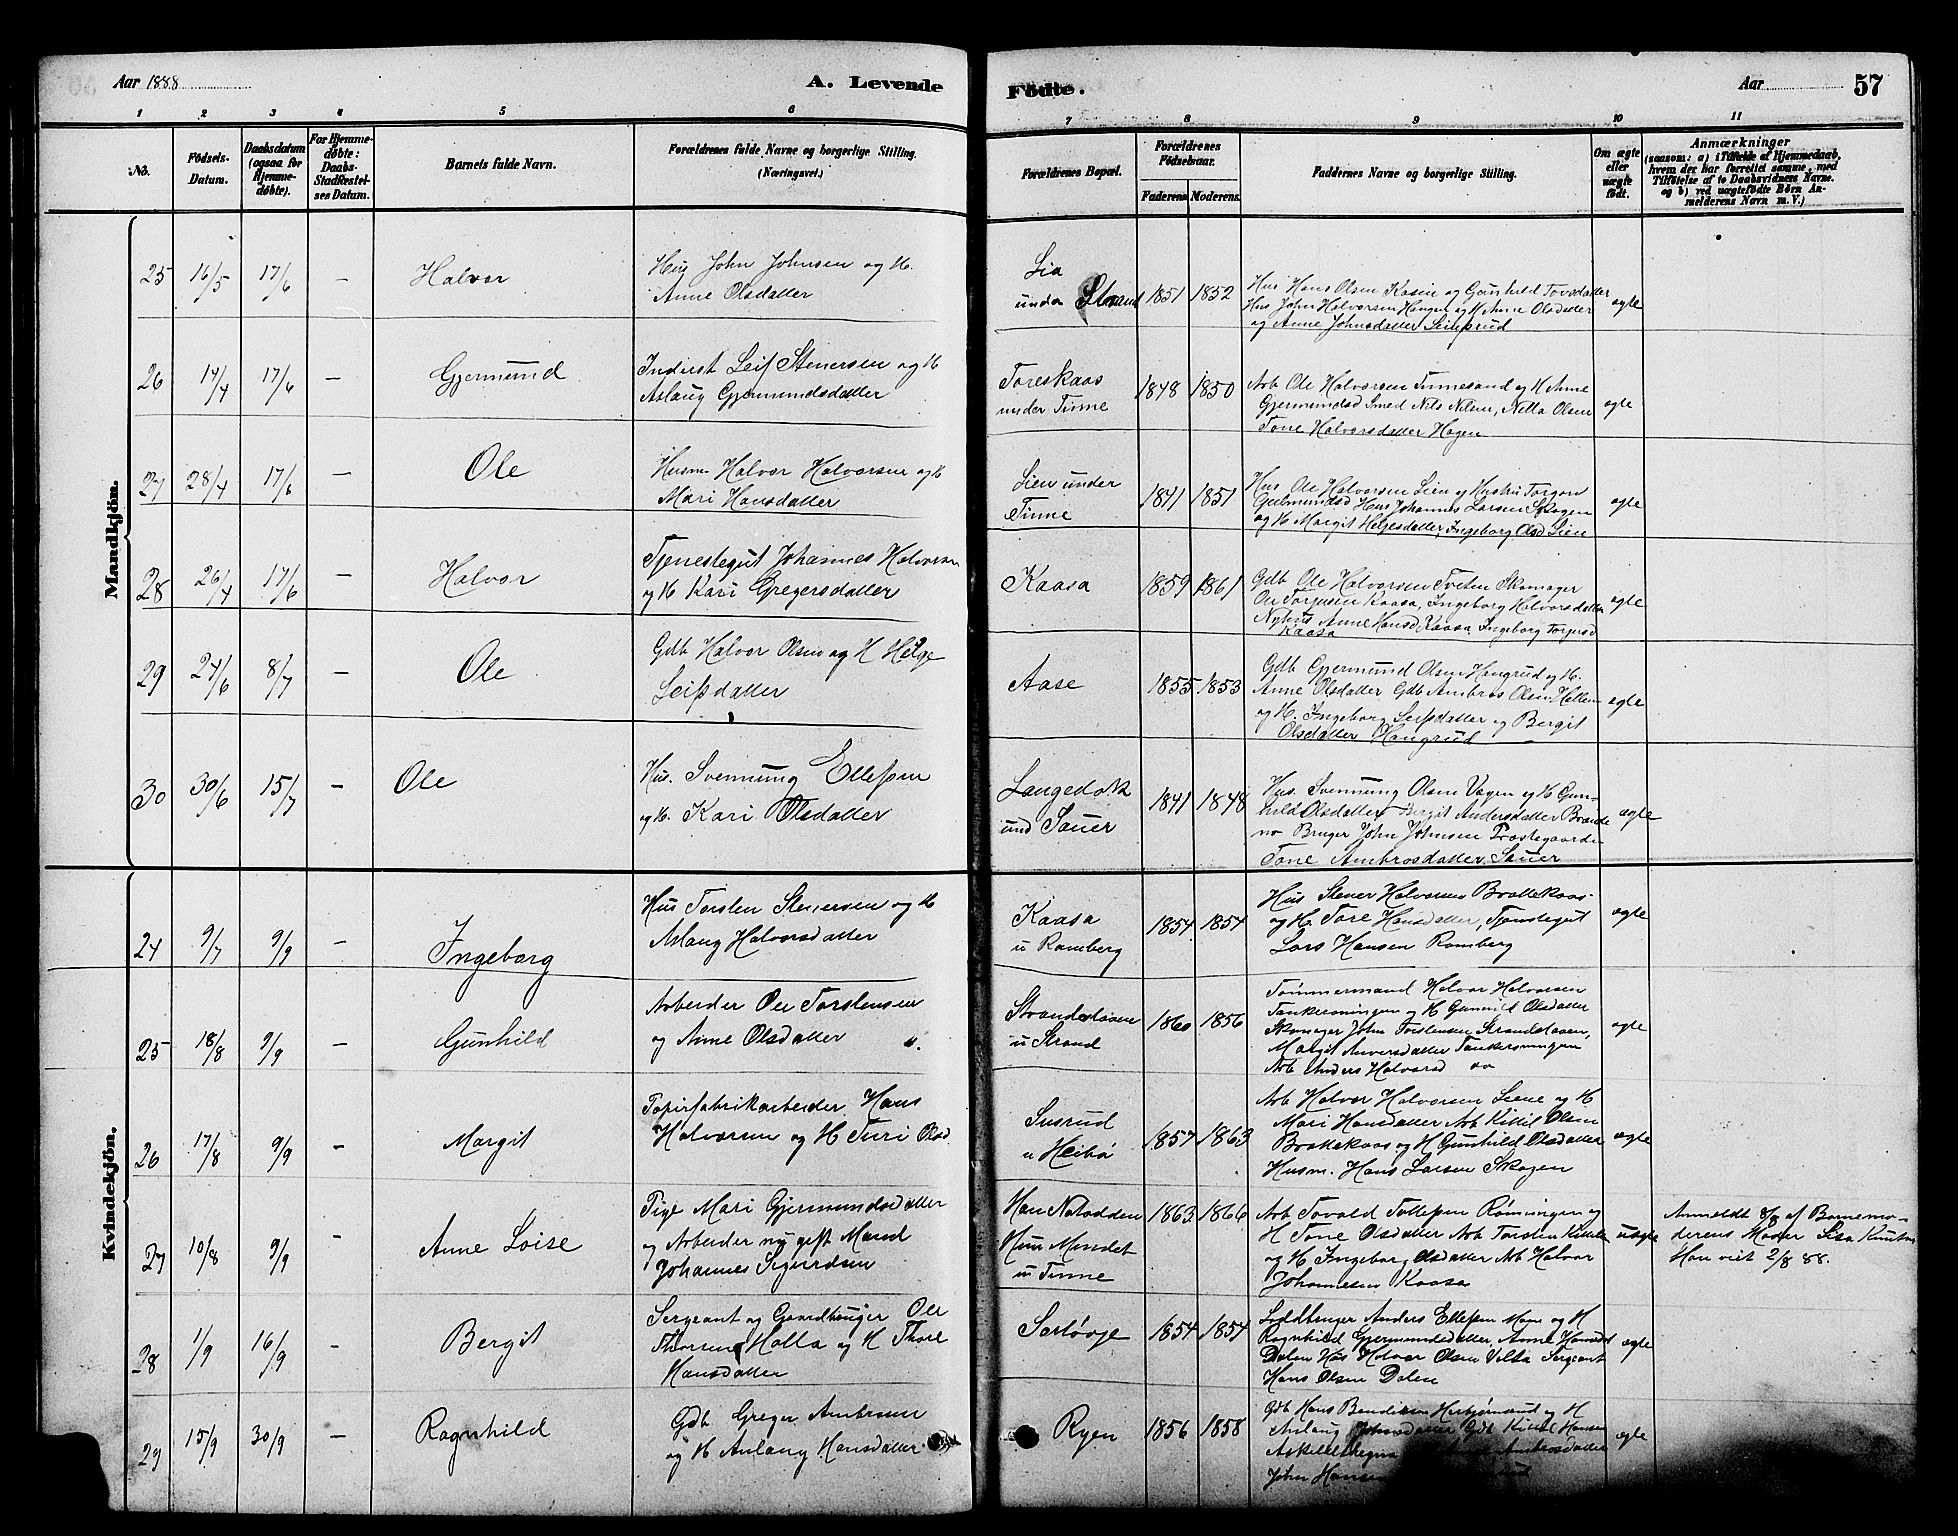 Aar 1888
A. Levende
Fødte.
Aar
57
1 2 3 4 5 6 7 8 9 10 11
No.
Födsels-
Datum.
Daabsdatum
(ogsaa for
Hjemme-
døbte).
For Hjemme-
døbte:
Daabs-
Stadfæstel-
ses Datum.
Barnets fulde Navn.
Forældrenes fulde Navne og borgerlige Stilling.
(Næringsvei.)
Forældrenes Bopæl.
Forældrenes
Fødselsaar.
Faderens Moderens.
Faddernes Navne og borgerlige Stilling.
Om ægte
eller
uægte
født.
Anmærkninger
(saasom: a) i Tilfælde af Hjemmedaab,
hvem der har forrettet samme, med
Tilføielse af to Daabsvidners Navne.
og b) ved uægtefødte Børn An-
melderens Navn m. V.)
Mandkjön.
25 16/5 17/6 — Halvor
Hus John Johnsen og H.
Anne Olsdatter
Lia
under Strand
1851 1852
Hus Hans Olsen Kasin og Gunhild Tovsdatter
Hus John Halvorsen Haugen og H Anne Olsdatter
og Anne Johnsdatter
ægte
26 14/4 17/6 — Gjermund
Inderst Leif Stenersen og H
Aslaug Gjermundsdatter
Toreskaas
under Tinne
1848 1850
Arb Ole Halvorsen Tinnesand og H Anne
Gjermundsd Smed Nils Nilsen, Netta Olsen
Tone Halvorsdatter Hagen
ægte
27 28/4 17/6 — Ole
Husm Halvor Halvorsen og H
Mari Hansdatter
Lien under
Tinne
1841 1851
Hus Ole Halvorsen Lien og Hustru Torgon
Gulmundsd Hus Johannes Larsen Skogen
og H Margit Helgesdatter, Ingeborg Olsd Lien
ægte
28 26/4 17/6 — Halvor
Tjenestegut Johannes Halvorsen
og H Kari Gregersdatter
Kaasa
1859 1861
Gdb Ole Halvorsen Tveten Skomager
Ole Torjusen Kaasa, Ingeborg Halvorsdatter
Nyhus Anne Hansd Kaasa Ingeborg Torjusd
Kaasa
ægte
29 24/6 8/7 — Ole
Gdb Halvor Olsen og H Helge
Leifsdatter
Aase
1855 1853
Gdb Gjermund Olsen Haugrud og H.
Anne Olsdatter Gdb Ambros Olsen
og H. Ingeborg Leifsdatter og Bergit
Olsdatter Haugrud
ægte
30 30/6 15/7 — Ole
Hus. Svennung Ellefsen
og H. Kari Olsdatter
Langedok
und Sauer
1841 1848
Hus. Svennung Olsen Vagen og H Gun-
hild Olsdatter Bergit Andersdatter
Bruger John Johnsen Præstegaarden
Tone Ambrosdatter, Sauer
ægte
Kvindekjön.
24 9/7 9/9 — Ingeborg
Hus Torsten Stenersen og H
Aslaug Halvorsdatter
Kaasa
u Ramberg
1854 1854
Hus Stener Halvorsen Brattekaas
og H. Tore Hansdatter, Tjenstegut
Lars Hansen Ramberg
ægte
25 18/8 9/9 — Gunhild
Arbeider Ole Torstensen
og Anne Olsdatter
Strandstaaen
u Strand
1860 1856
Tømmermand Halvor Halvorsen
og H Gunnil Olsdatter
Skomager John Torstensen Strandstaaen,
Margit
Arb Anders Halvorsd
ægte
26 17/8 9/9 — Margit
Papirfabrikarbeider Hans
Halvorsen og H Turi Olsd.
Susrud
u Heibø
1857 1863
Arb Halvor Halvorsen Liene og H
Mari Hansdatter Arb Kittil Olsen
Brattekaas og H Gunhild Olsdatter
Husm. Hans Larsen Skogen
ægte
27 10/8 9/9 — Anne Loise
Pige Mari Gjermundsdatter
og Arbeider ny gift Mand
Johannes Sigurdsen
Han Notodden
Hun Mindet
u Tinne
1863 1866
Arb Tovald Tollefsen Rønningen og
H Tone Olsdatter Arb Torsten Kittilsen
og H Ingeborg Olsdatter Arb Halvor
Johannesen Kaasa
uægte
Anmeldt 8/8 af Barnemo-
derens Moder Lisa Knutsd
Han viet 2/8 88.
28 1/9 16/9 — Bergit
Sergeant og Gaardbruger Ole
Thorsen Holla og H Thore
Hansdatter
1854 1854
Loddbruger Anders Ellefsen Moen og H
Ragnhild Gjermundsdatter, Anne Hansdat
Dalen Hus Halvor Olsen Sergeant
Hans Olsen Dalen
ægte
29 15/9 30/9 — Ragnhild
Gdb Greger Ambrosen
og H Aslaug Hansdatter
Ryen
1856 1858
Gdb Hans Bendiksen og H
Aslaug Johnsdatter Gdb Kittil Hansen
Ambrosdatter
John Hansen
ægte